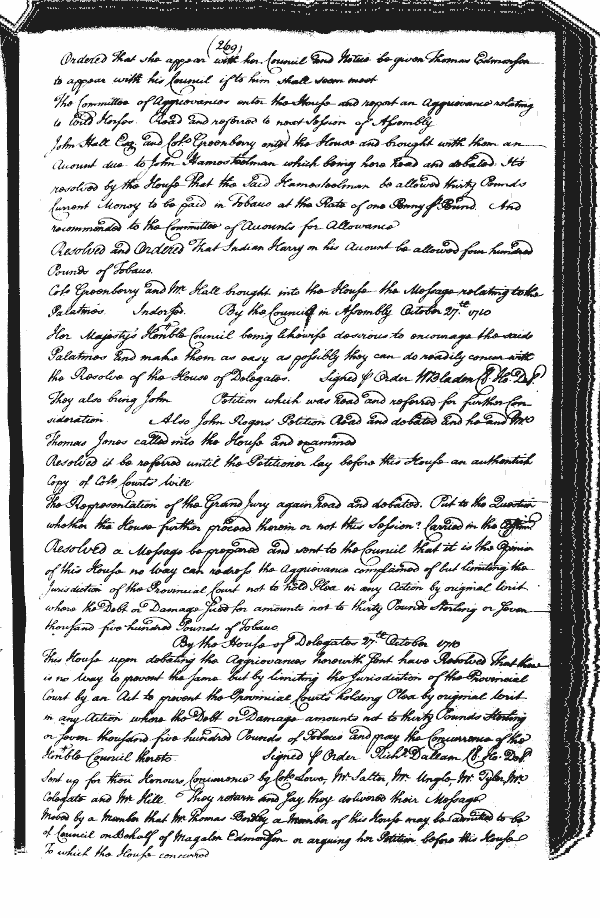 (269)
Ordered That she appear with her Council and Notice be given Thomas Edmonson
to appear with his Council if to him shall seem meet
The Committee of Aggrievances enter the House and report an Aggrievance relating
to Wild Horses. Read and referred to next Session of Assembly
John Hall Esq and Colo Greenberry enter the House and brought with them an
Account due to John Hamesteelman which being here Read and debated. It's
resolved by the House That the said Hamesteelman be allowed thirty Pounds
Current Money to be paid in Tobacco at the Rate of one Penny ⅌ Pound. And
recommended to the Committee of Accounts for Allowance
Resolved and Ordered That Indian Harry on his Account be allowed four hundred
Pounds of Tobacco.
Colo Greenberry and Mr Hall brought into the House the Message relating to the
Palatines. Indorsed. By the Council in Assembly October 27.th 1710
Her Majesty's Honble Council being likewise desirous to encourage the said
Palatines and make them as easy as possibly they can do readily concur with
the Resolve of the House of Delegates. Signed ⅌ Order WBladen Cl. Ho. Del.
They also bring John Petition which was read and referred for further Con-
sideration Also John Rogers' Petition Read and debated and he and Mr
Thomas Jones called into the House and examined
Resolved it be referred until the Petitioner lay before this House an authentick
Copy of Colo Courts Will
The Representation of the Grand Jury again read and debated. Put to the Question
whether the House further proceed therein or not this Session? Carried in the
Resolved a Message be prepared and sent to the Council that it is the Opinion
of this House no way can redress the Aggrievance complained of but limiting the
Jurisdiction of the Provincial Court not to hold Plea in any Action by original Writ
where the Debt or Damage sued for amounts not to thirty Pounds Sterling or Seven
thousand five hundred Pounds of Tobacco
By the House of Delegates 27.th October 1710
This House upon debating the Aggrievances herewith sent have Resolved That there
is no Way to prevent the same but by limiting the Jurisdiction of the Provincial
Court by an Act to prevent the Provincial Courts holding Plea by original Writ
in any Action where the Debt or Damage amounts not to thirty Pounds Sterling
or Seven thousand five hundred Pounds of Tobacco and pray the Concurrence of the
Honble Council thereto. Signed ⅌ Order Richd Dallam Cl. Ho. Del.
Sent up for their Honours Concurrence by Colo Lowe, Mr Salter, Mr Ungle, Mr Tyler, Mr
Colegate and Mr Hill. They return and say they delivered their Message
Moved by a Member that Mr Thomas Bordley a Member of this House may be admitted to be
of Council on Behalf of Magalen Edmonson or arguing her Petition before this House
To which the House concurred